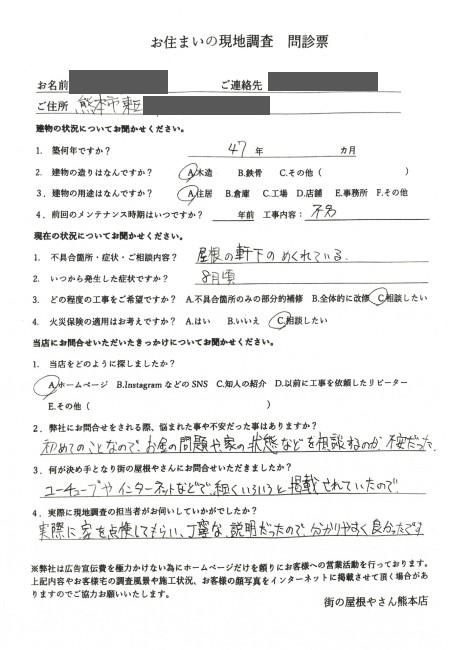 お住まいの現地調査　問診票
お名前　ご連絡先
ご住所　熊本市東区
建物の状況についてお聞かせください。
1．築何年ですか？　47 年　カ月
2．建物の造りはなんですか？　A.木造　B.鉄骨　C.その他（　）
3．建物の用途はなんですか？　A.住居　B.倉庫　C.工場　D.店舗　E.事務所　F.その他
4．前回のメンテナンス時期はいつですか？　年前　工事内容：不名
現在の状況についてお聞かせください。
1．不具合箇所・症状・ご相談内容？　屋根の軒下のめくれている.
2．いつから発生した症状ですか？　8月頃
3．どの程度の工事をご希望ですか？　A.不具合箇所のみの部分的補修　B.全体的に改修　C.相談したい
4．火災保険の適用はお考えですか？　A.はい　B.いいえ　C.相談したい
当店にお問合せいただいたきっかけについてお聞かせください。
1．当店をどのように探しましたか？
A.ホームページ　B.Instagram などの SNS　C.知人の紹介　D.以前に工事を依頼したリピーター
E.その他（　）
2．弊社にお問合せをされる際、悩まれた事や不安だった事はありますか？
初めてのことなので、お金の問題や家の状態などを相談するのが不安だった.
3．何が決め手となり街の屋根やさんにお問合せいただきましたか？
ユーチューブやインターネットなどで、細くいろいろと掲載されていたので
4．実際に現地調査の担当者がお伺いしていかがでしたか？
実際に家を点検してもらい、丁寧な説明だったので、分かりやすく良かったです
※弊社は広告宣伝費を極力かけない為にホームページだけを頼りにお客様への営業活動を行っております。
上記内容やお客様宅の調査風景や施工状況、お客様の顔写真をインターネットに掲載させて頂く場合があ
りますのでご協力お願いいたします。
街の屋根やさん熊本店